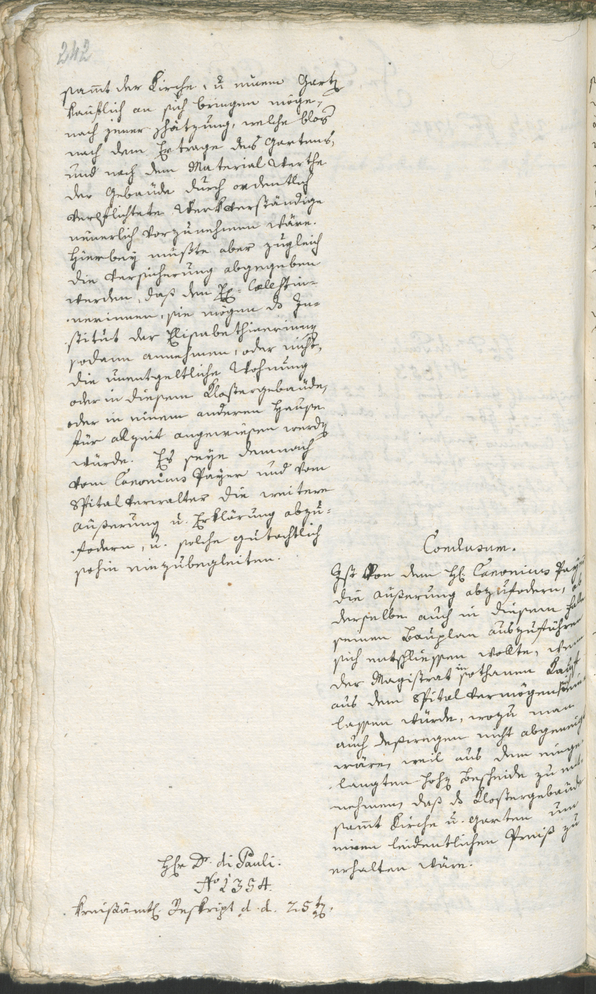 242
sammt der Kirche, u. einem Garten
käuflich an sich bringen möge,
nach jener Schätzung, welche blos
nach dem Ertrage des Gartens,
und nach dem Material Werthe
der Gebäude durch ordentlich
verpflichtete Werkverständige
neuerlich vorzunehmen wäre.
Hierbey müßte aber zugleich
die Versicherung abgegeben
werden, daß den Ex Cölestin-
nerinnen, sie mögen ds In-
stitut der Elisabethinerinnen
sodann annehmen, oder nicht,
die unentgeltliche Wohnung
oder in diesem Klostergebäude,
oder in einem anderen Hause
für allzeit angewiesen werden
würde. Es seye demnach
vom Canonicus Payer und vom
Spitalverwalter die weitere
Äußerung u. Erklärung abzu-
fodern, u. solche gutachtlich
sohin einzubegleiten.
Conclusum.
Ist von dem H. Canonicus Payer
die Äußerung abzufodern, ob
derselbe auch in diesem Falle
seinen Bauplan auszuführen
sich entschliessen wollte, wenn
der Magistrat sothanen Kauf
aus dem Spitalvermögen
lassen würde, wozu man
auch deßwegen nicht abgeneigt
wäre, weil aus dem einge-
langten hohen Bescheide zu ent-
nehmen, daß ds Klostergebäude
sammt Kirche u. Garten um
einen leidentlichen Preiß zu
erhalten wäre.
Hr. Dr. di Pauli.
No 1354.
Kreisämtl. Reskript d. d. 25